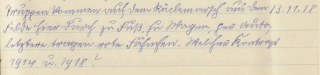 Truppen kommen auf dem Rückmarsch aus dem 13.11.18
Felde hier durch zu Fuß, zu Wagen, per Auto,
letztere tragen rote Fähnchen. Welcher Kontrast
1914 u. 1918!